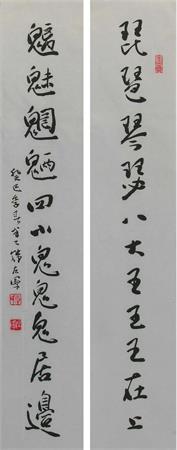 琵琶琴瑟八大王王王在上
魑魅魍魎四小鬼鬼鬼居邊